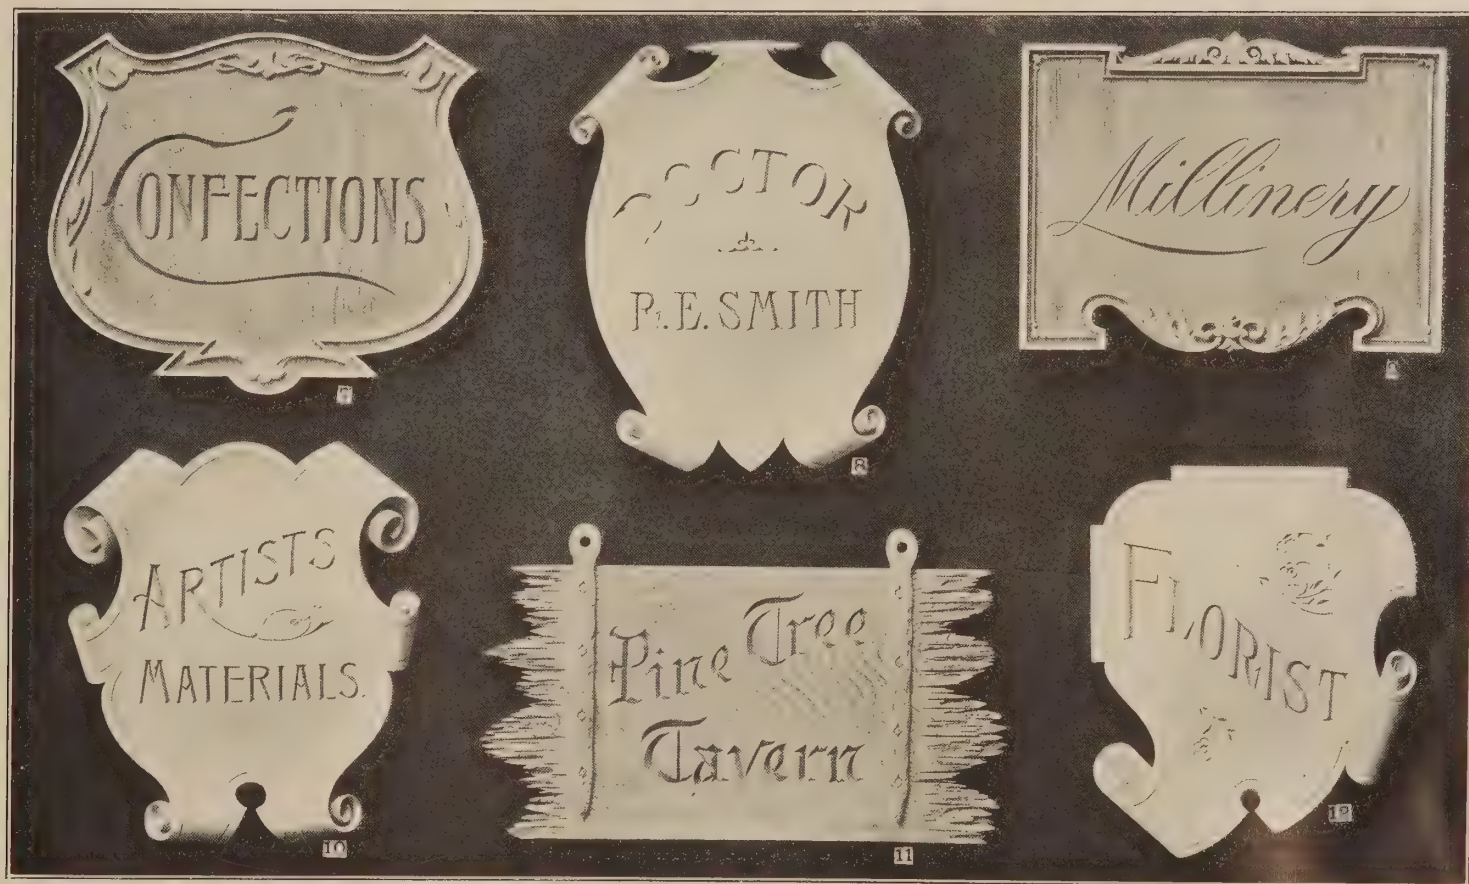 CONFECTIONS
DOCTOR
R.E. SMITH
8
Millinery
ARTISTS
MATERIALS.
10
Pine Tree
Tavern
11
FLORIST
12